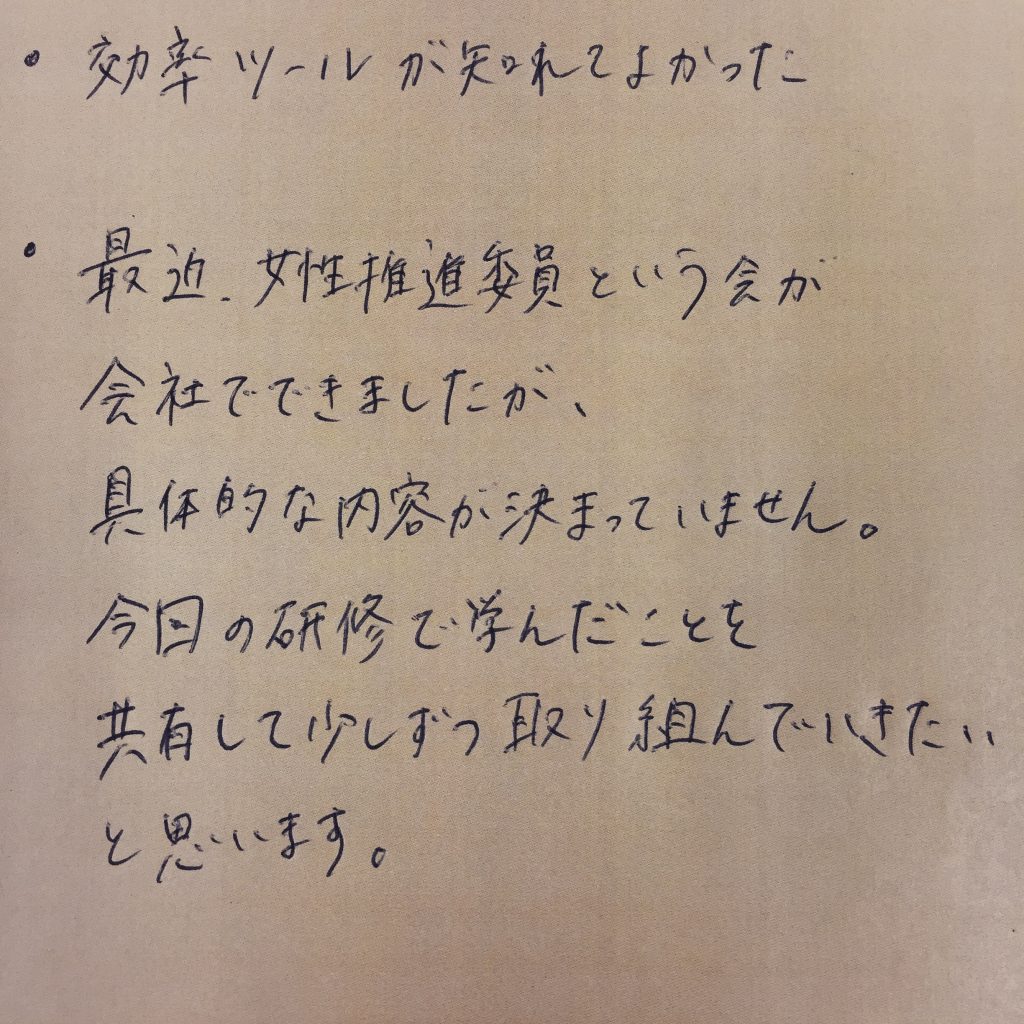 ・効率ツールが知れてよかった
・最近、女性推進委員という会が
会社でできましたが、
具体的な内容が決まっていません。
今日の研修で学んだことを
共有して少しずつ取り組んでいきたい
と思います。